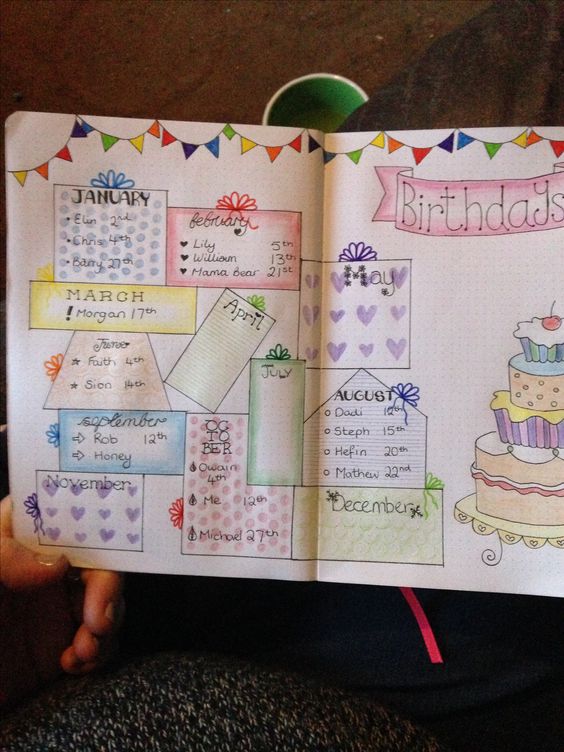 JANUARY
• Elin 2nd
• Chris 4th
• Barry 27th
february
Lily 5th
William 13th
Mama Bear 21st
MARCH
! Morgan 17th
April
June
Faith 4th
Sion 14th
JULY
september
⇨ Rob 12th
⇨ Honey
OC
TO
BER
Owain
4th
Me 12th
Michael 27th
November
Birthdays
May
AUGUST
Dadi
Steph 15th
Hefin 20th
Mathew 22nd
December